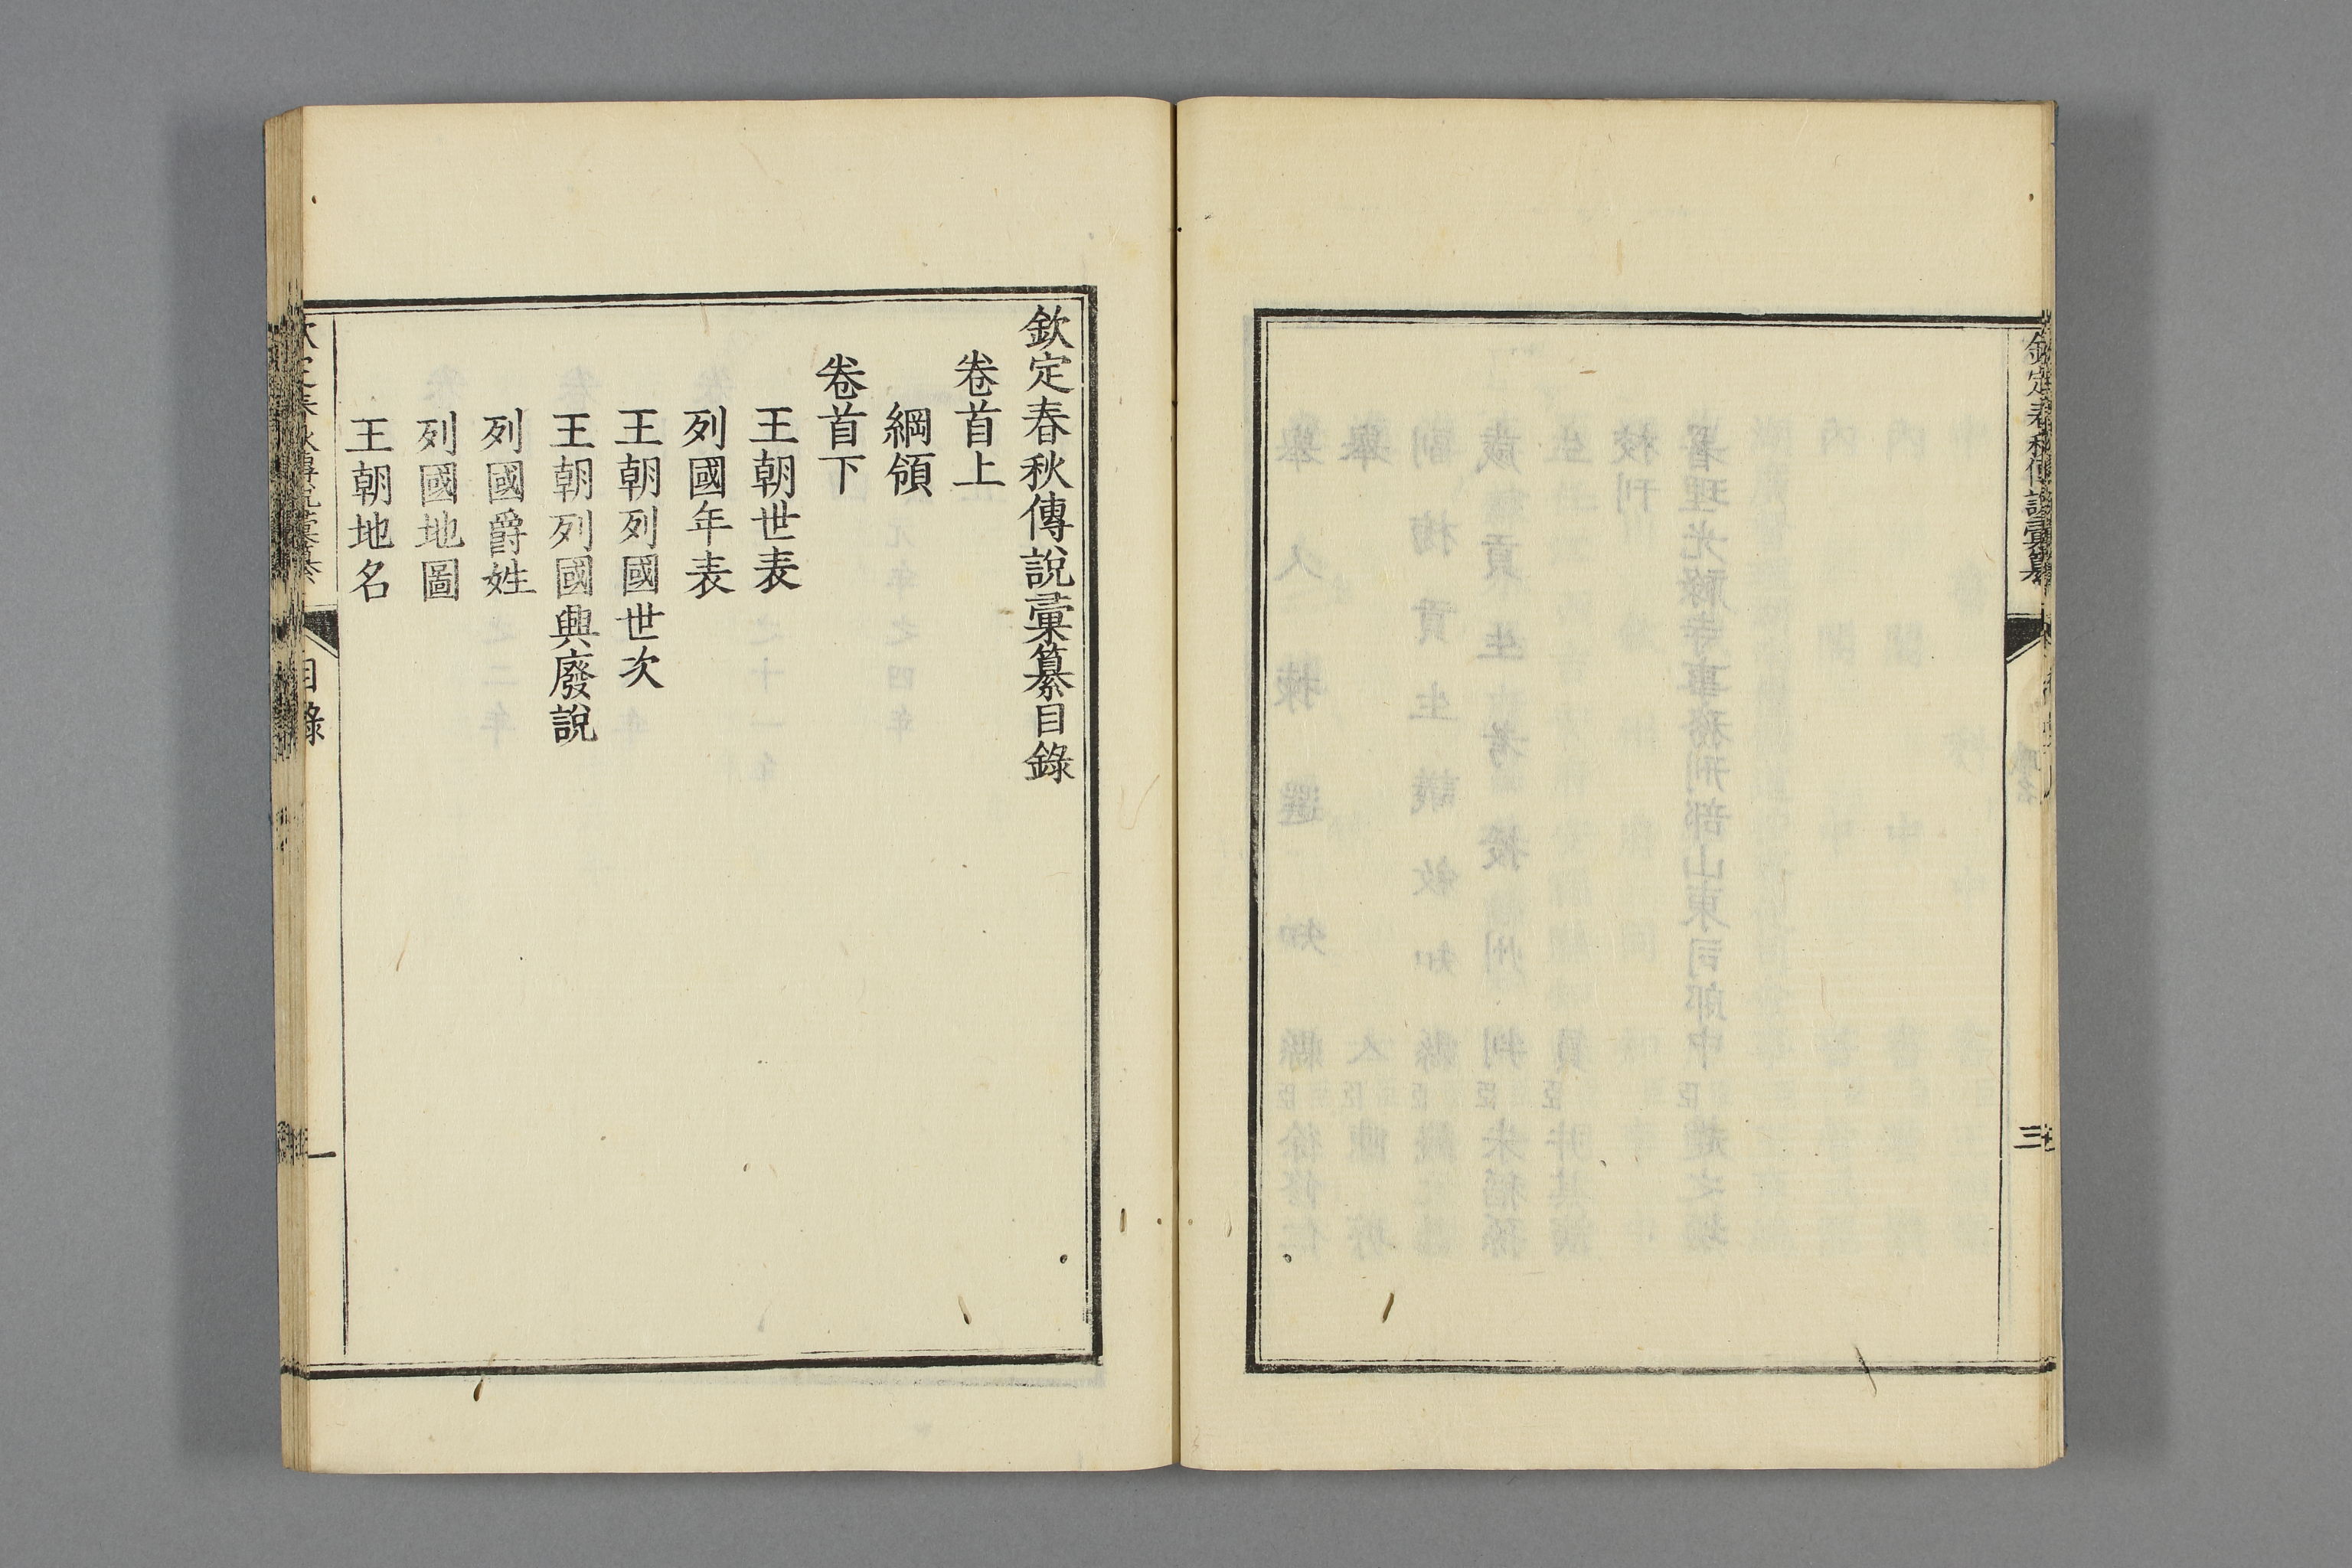 欽定春秋傳說彙纂
三
欽定春秋傳說彙纂目錄
卷首上
綱領
卷首下
王朝世表
列國年表
王朝列國世次
王朝列國興廢說
列國爵姓
列國地圖
王朝地名
目錄
一